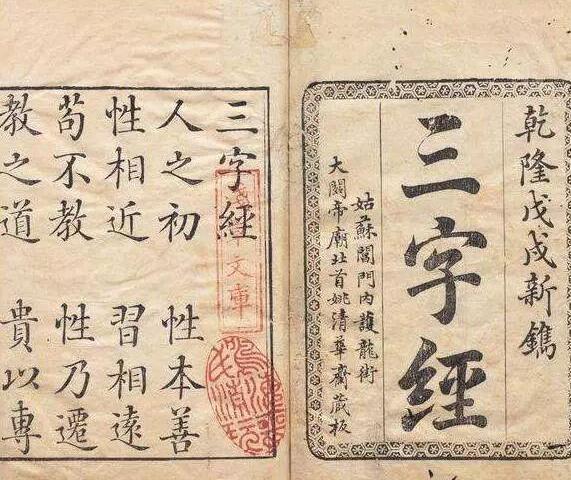 乾隆戊戌新鐫
三字經
姑蘇閶門內護龍街
大關帝廟北首姚清華齋蔵板
三字經
文庫
人之初 性本善
性相近 習相遠
苟不教 性乃遷
教之道 貴以專